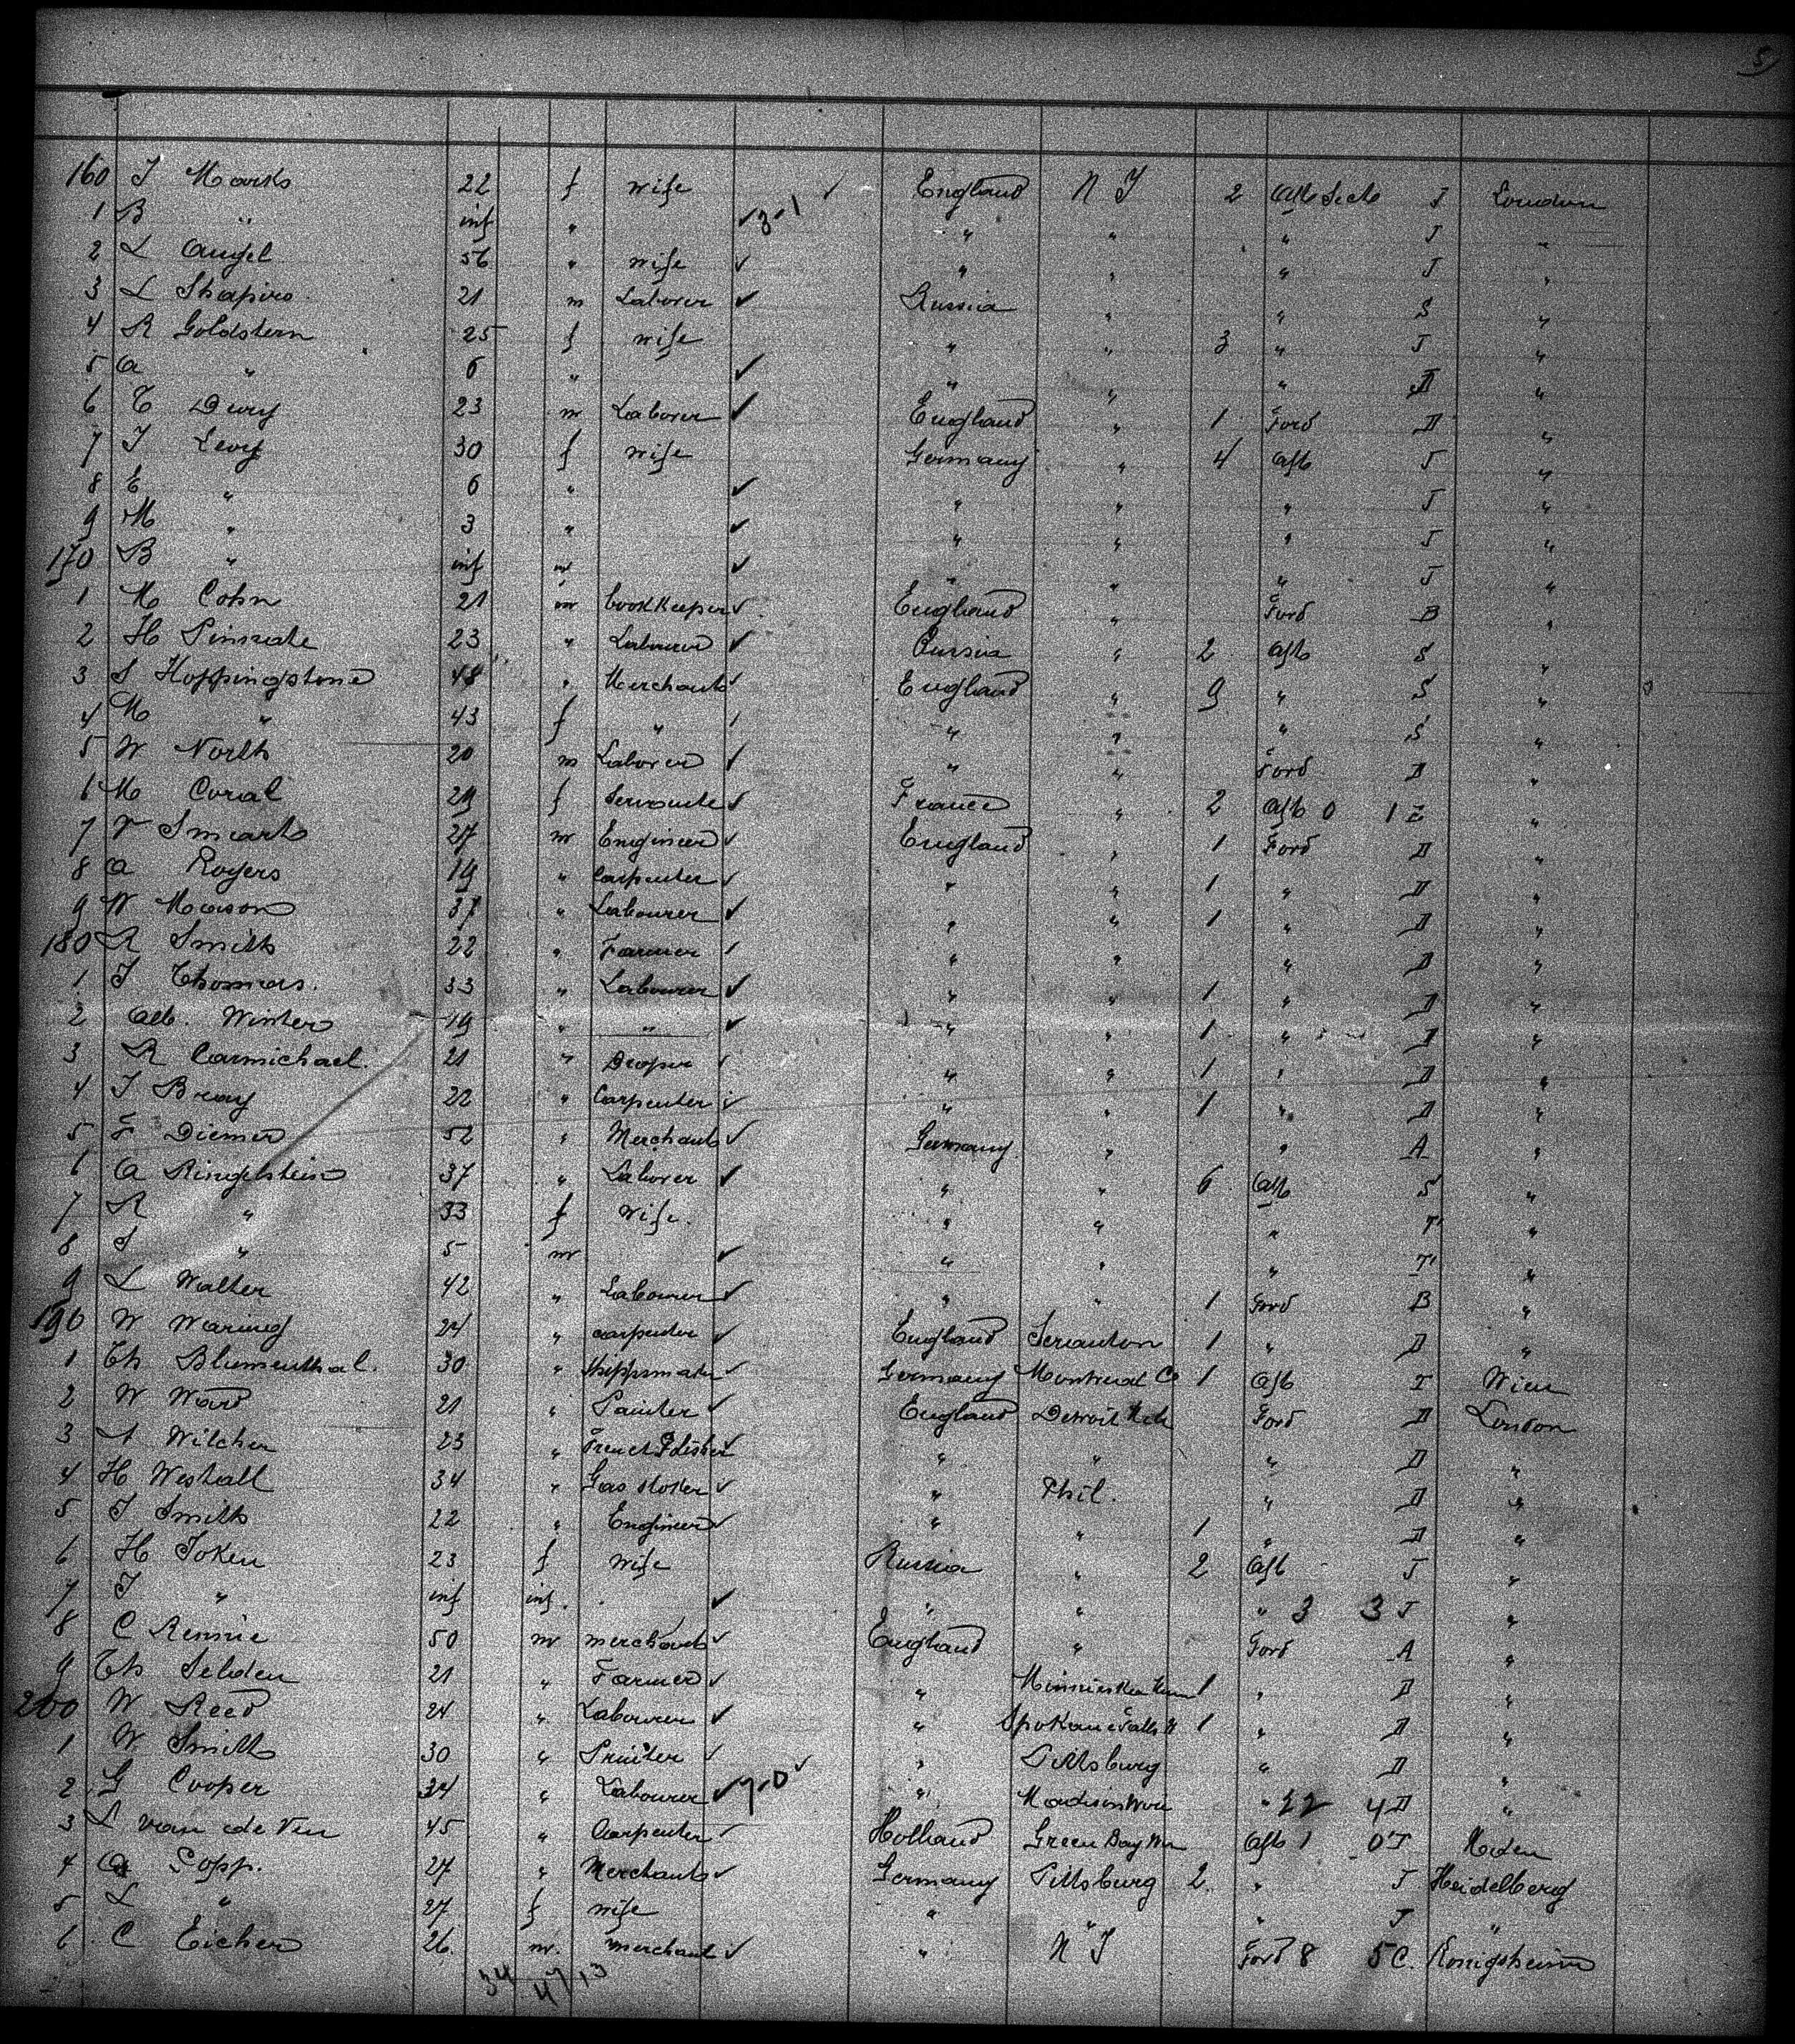 5
160 J Marks 22 f wife England N Y 2 Aft Sect J London
1 B " inf " ✓ 3-1 " " " J "
2 L Angel 56 " wife ✓ " " " J "
3 L Shapiro 21 m Laborer ✓ Russia " " S "
4 R Goldstern 25 f wife " " 3 " J "
5 A " 6 " ✓ " " " J "
6 T Dury 23 m Laborer ✓ England " 1 Ford D "
7 J Levy 30 f wife Germany " 4 Aft J "
8 E " 6 " ✓ " " " J "
9 M " 3 " ✓ " " " J "
170 B " inf m ✓ " " " J "
1 M Cohn 21 m bookkeeper ✓ England " Ford B "
2 H 23 " Labourer ✓ Russia " 2 Aft S "
3 S Hoppingstone 48 " Merchant ✓ England " 9 " S "
4 M " 43 f " " " " S "
5 W North 20 m Laborer ✓ " " Ford D "
6 M 29 f Servante ✓ France " 2 Aft 0 1 Z "
7 V Smart 27 m Engineer ✓ England " 1 Ford D "
8 A Rogers 19 " Carpenter ✓ " " 1 " D "
9 W Mason 37 " Labourer ✓ " " 1 " D "
180 R Smith 22 " Farmer " " " D "
1 J Thomas. 33 " Labourer ✓ " " 1 " D "
2 Alb. Winter 19 " " ✓ " " 1 " D "
3 R Carmichael. 21 " Draper " " 1 " D "
4 J Bray 22 " Carpenter ✓ " " 1 " D "
5 F Diemer 52 " Merchant ✓ Germany " " A "
6 A Ringelstein 37 " Laborer ✓ " " 6 Aft S "
7 R " 33 f Wife. " " " T "
8 S " 5 m ✓ " " " T "
9 L Walter 42 " Labourer ✓ " " 1 Ford B "
190 W Waring 24 " carpenter ✓ England Scranton 1 " D "
1 Th Blumenthal. 30 " Shippsmate ✓ Germany Montreal C 1 Aft I Wien
2 W Ward 21 " Painter ✓ England Detroit Ford D London
3 Wilcher 23 " French Polisher ✓ " " " D "
4 H Westall 34 " Gas stoker ✓ " Phil. " D "
5 J Smith 22 " Engineer ✓ " " 1 " D "
6 H Joken 23 f wife Russia " 2 Aft J "
7 J " inf inf. ✓ " " " 3 3 J "
8 C Rennie 50 m merchant ✓ England " Ford A "
9 Th Selden 21 " Farmer ✓ " 1 " D "
200 W Reed 24 " Labourer ✓ " Spokane Falls W 1 " D "
1 W Smith 30 " Printer ✓ " Pittsburg " D "
2 G Cooper 34 " Labourer ✓ 7-0 " " 22 4 D "
3 L van de Ven 45 " Carpenter ✓ Holland Green Bay Aft 1 0 J
4 Popp. 27 " Merchant ✓ Germany Pittsburg 2 " J Heidelberg
5 L " 27 f wife " " " J "
6 C Eicher 26. m. merchant ✓ " N Y Ford 8 5 C. Königsheim
34 47 13